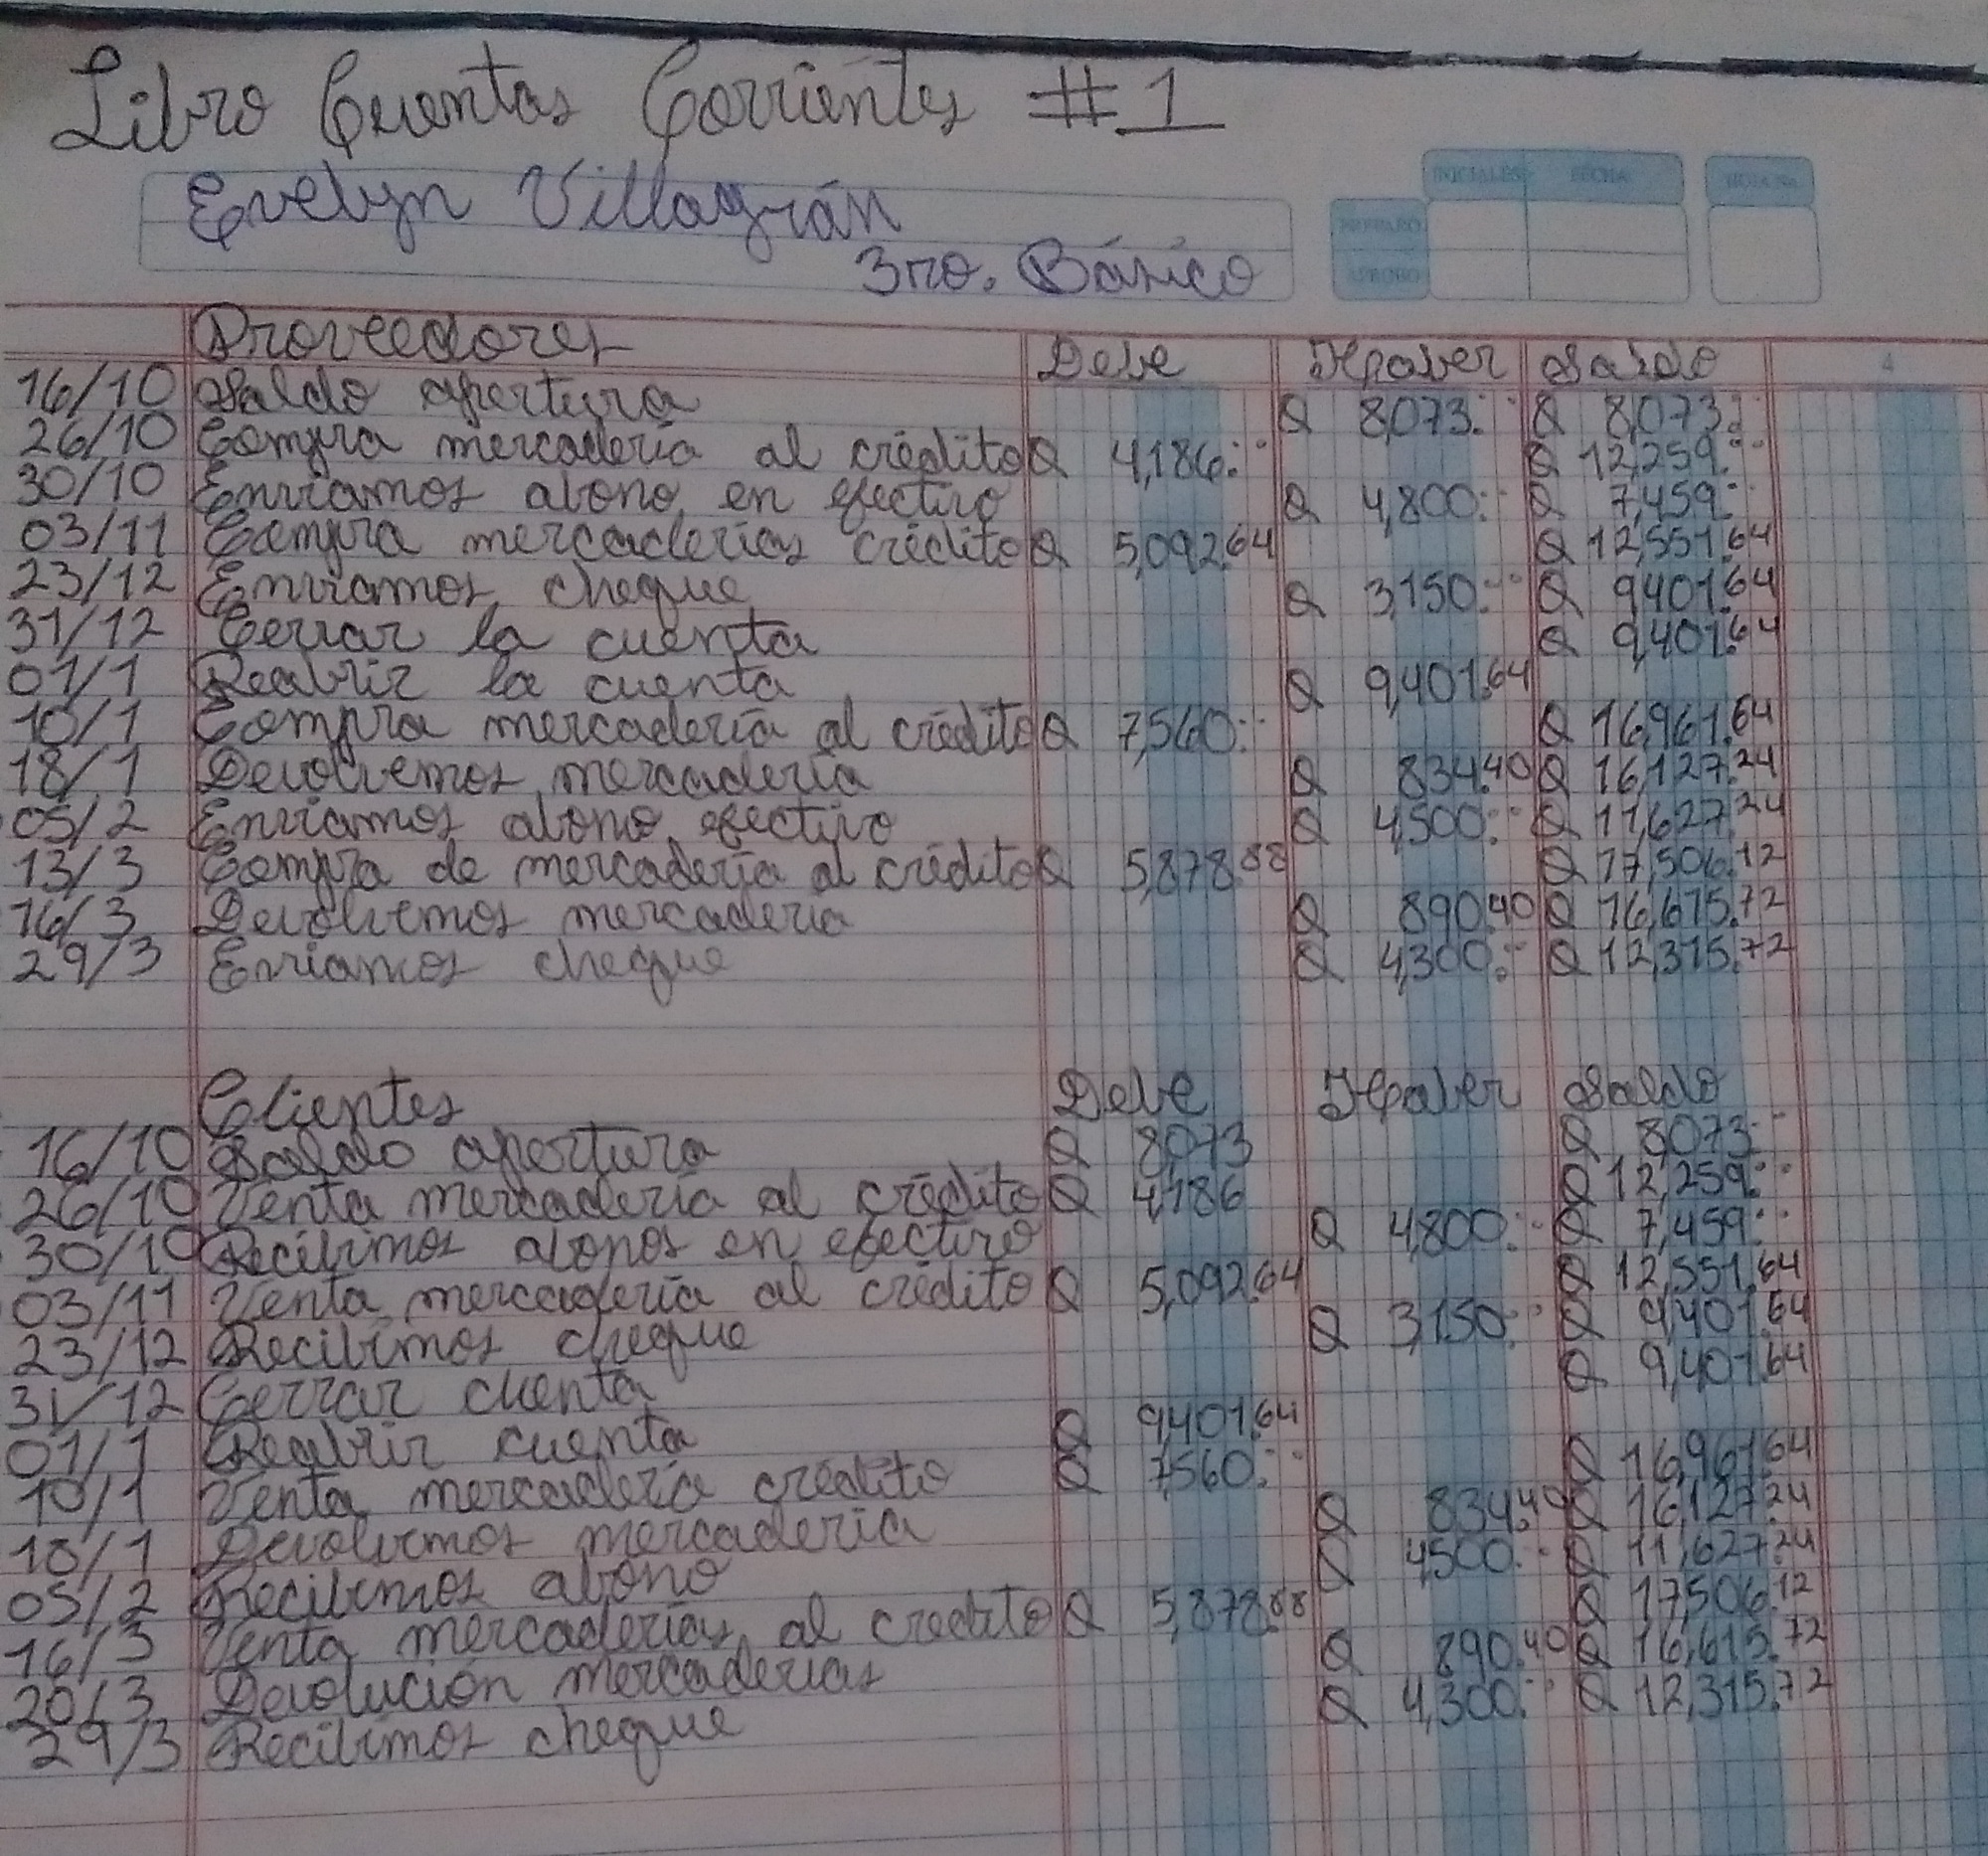 Libro Cuentas Corrientes #1
INICIALES FECHA HOJA No.
Evelyn Villagrán
PREPARO
3ro. Básico
APROBO
Proveedores Debe Haber Saldo 4
16/10 Saldo apertura Q 8,073.-- Q 8,073.--
26/10 Compra mercadería al crédito Q 4,186.-- Q 12,259.--
30/10 Enviamos abono en efectivo Q 4,800.-- Q 7,459.--
03/11 Compra mercaderías crédito Q 5,092.64 Q 12,551.64
23/12 Enviamos cheque Q 3,150.-- Q 9,401.64
31/12 Cerrar la cuenta Q 9,401.64
01/1 Reabrir la cuenta Q 9,401.64
10/1 Compra mercadería al crédito Q 7,560.-- Q 16,961.64
18/1 Devolvemos mercadería Q 834.40 Q 16,127.24
05/2 Enviamos abono efectivo Q 4,500.-- Q 11,627.24
13/3 Compra de mercadería al crédito Q 5,878.88 Q 17,506.12
16/3 Devolvemos mercadería Q 890.40 Q 16,615.72
29/3 Enviamos cheque Q 4,300.-- Q 12,315.72
Clientes Debe Haber Saldo
16/10 Saldo apertura Q 8,073 Q 8,073.--
26/10 Venta mercadería al crédito Q 4,186 Q 12,259.--
30/10 Recibimos abonos en efectivo Q 4,800.-- Q 7,459.--
03/11 Venta mercadería al crédito Q 5,092.64 Q 12,551.64
23/12 Recibimos cheque Q 3,150.-- Q 9,401.64
31/12 Cerrar cuenta Q 9,401.64
01/1 Reabrir cuenta Q 9,401.64
10/1 Venta mercadería crédito Q 7,560.-- Q 16,961.64
18/1 Devolvemos mercaderia Q 834.40 Q 16,127.24
05/2 Recibimos abono Q 4,500.-- Q 11,627.24
16/3 Venta mercaderías al credito Q 5,878.88 Q 17,506.12
20/3 Devolución mercaderias Q 890.40 Q 16,615.72
29/3 Recibimos cheque Q 4,300.-- Q 12,315.72